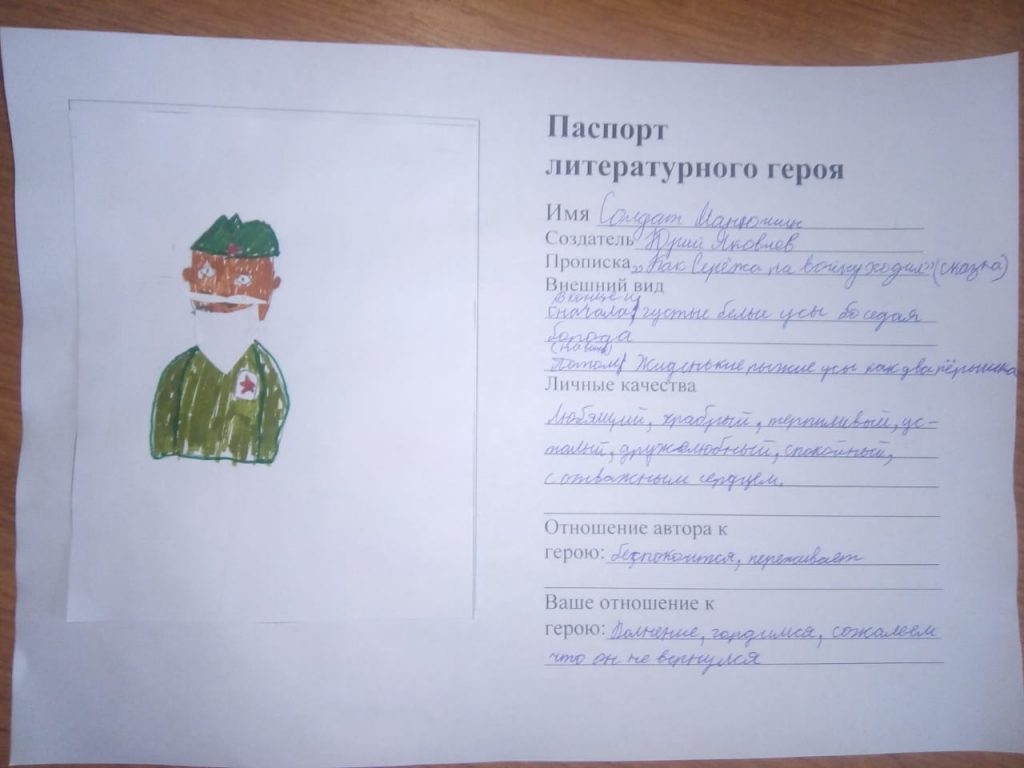 Паспорт
литературного героя
Имя Солдат Манюшин
Создатель Юрий Яковлев
Прописка „Как Серёжа на войну ходил” (сказка)
Внешний вид
В конце и
сначала густые белые усы боседая
борода
(на войне)
Потом Жиденькие рыжие усы как два пёрышка
Личные качества
Любящий, храбрый, терпиливый, ус-
талый, дружелюбный, спокойный,
с отважным сердцем.
Отношение автора к
герою: беспокоится, переживает
Ваше отношение к
герою: Волнение, гордимся, сожалеем
что он не вернулся